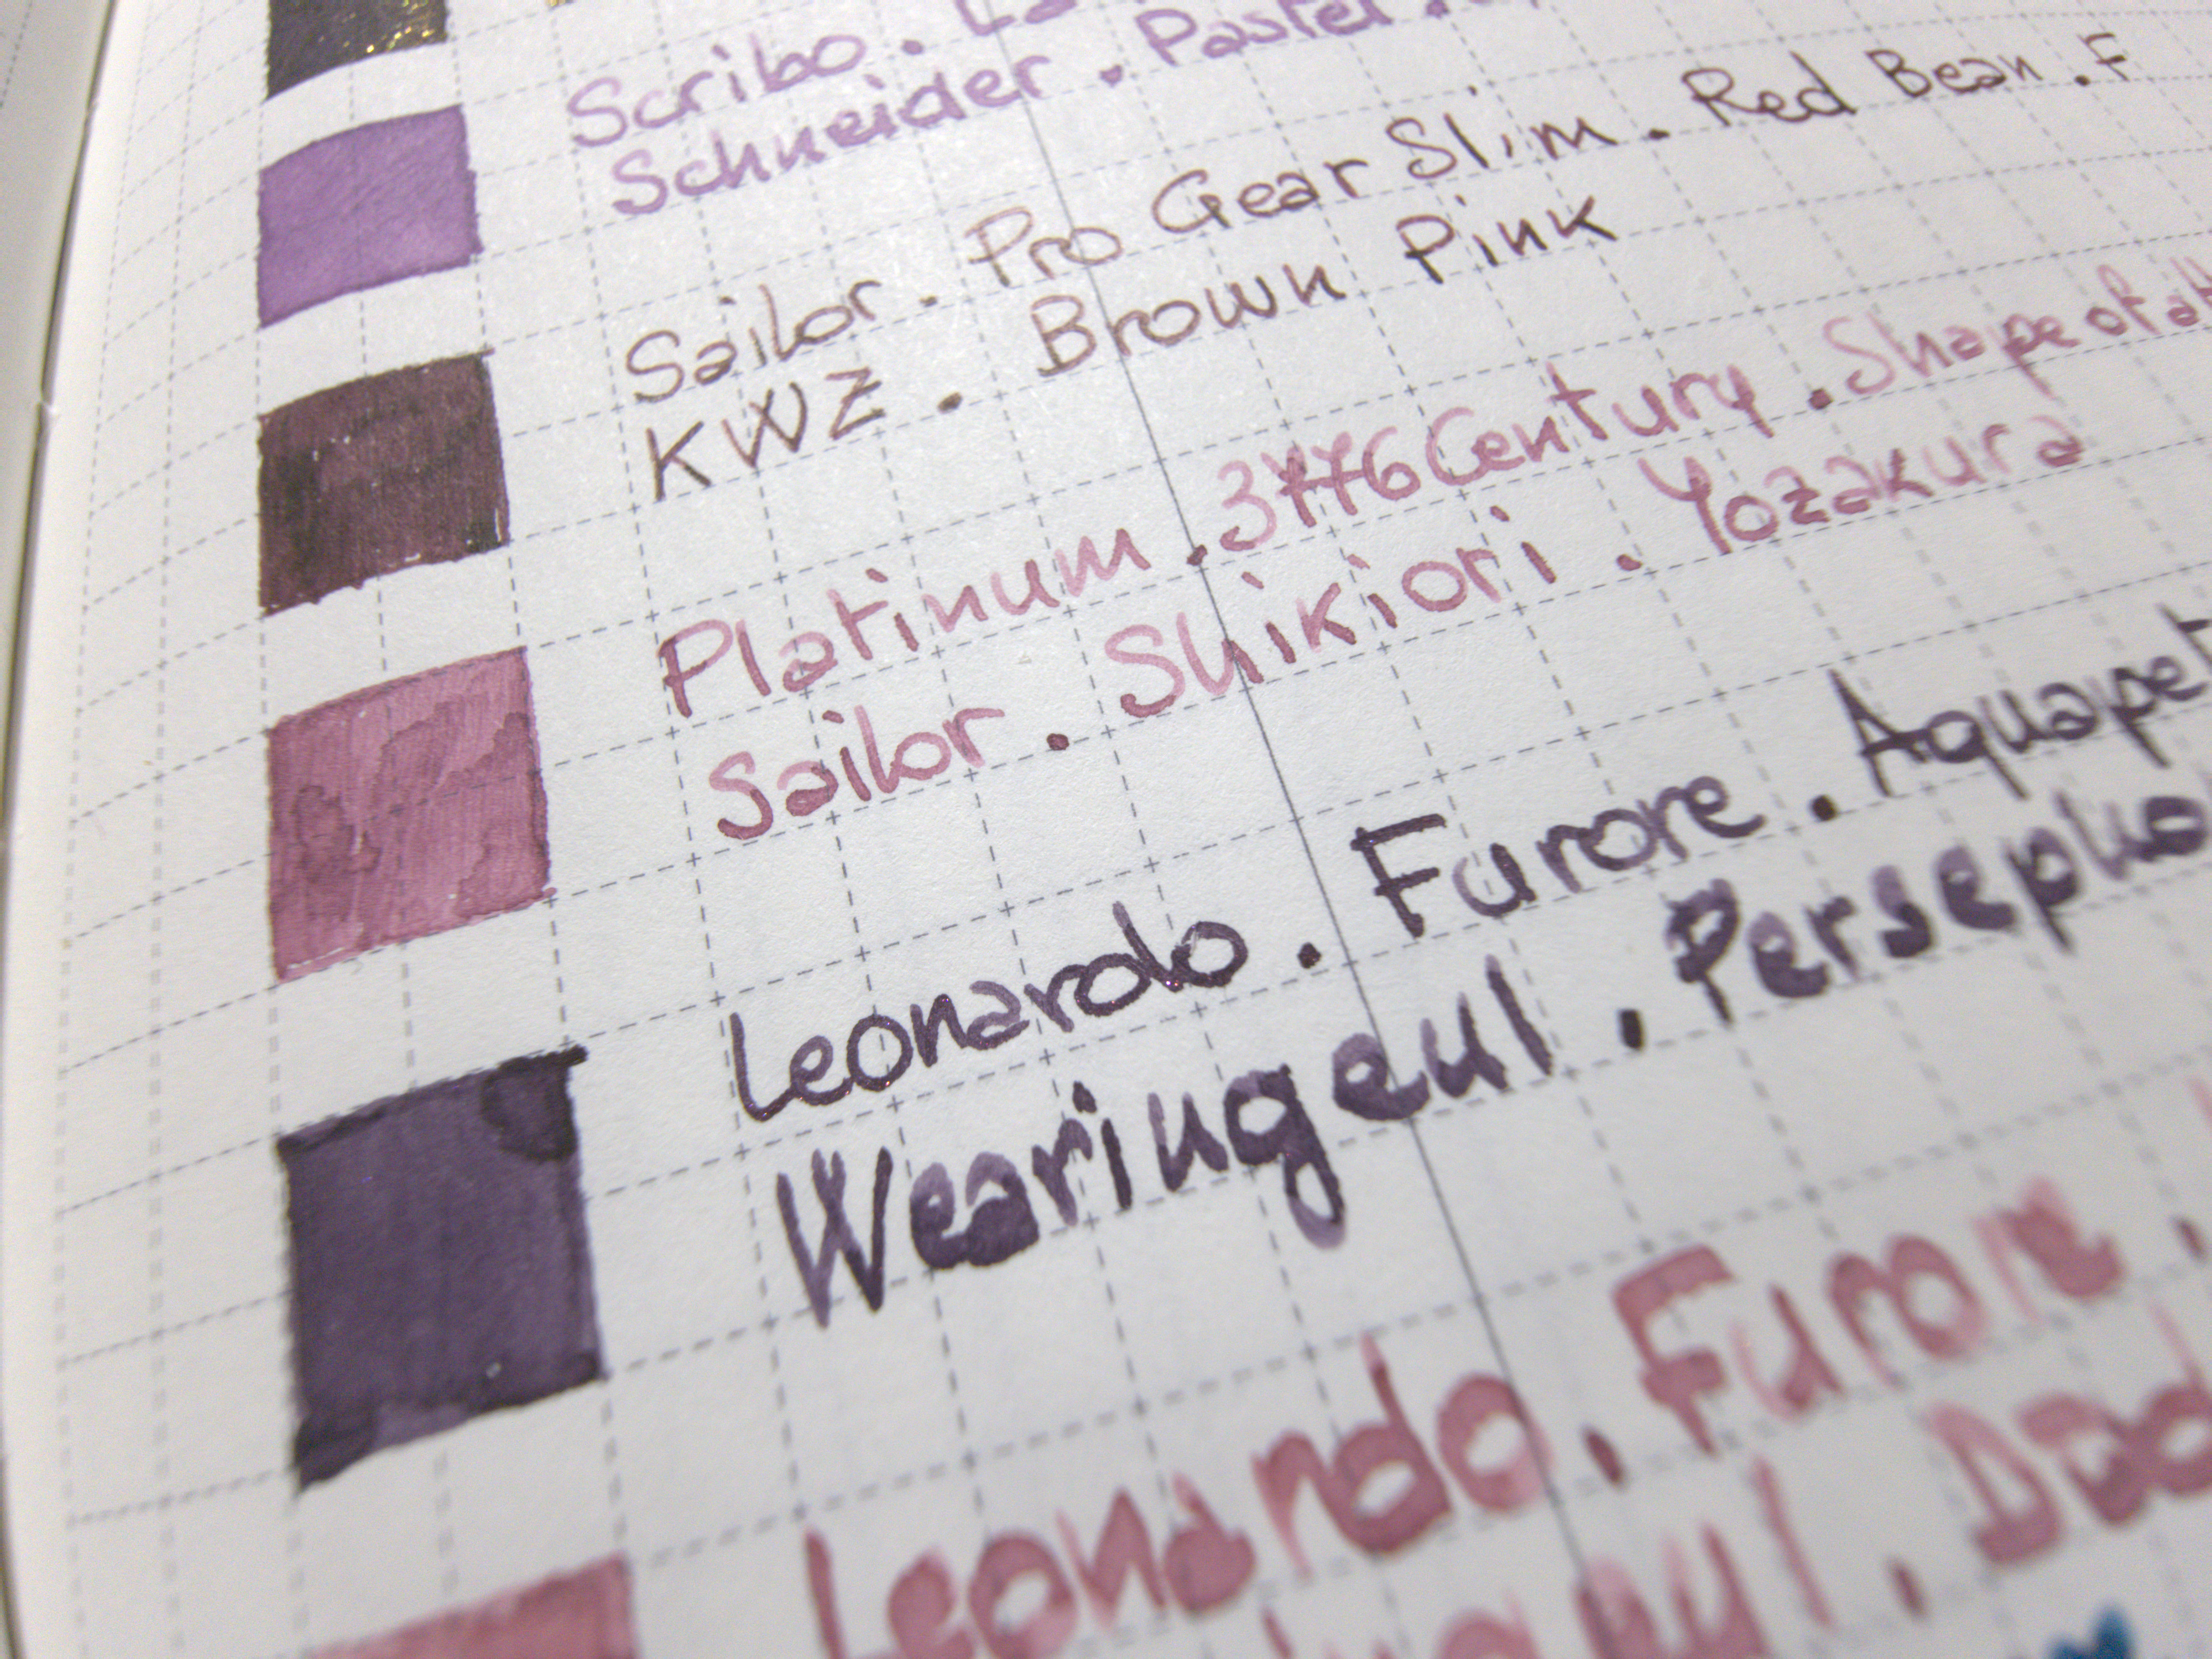 Scribo .
Schneider . Pastel .
Sailor . Pro Gear Slim . Red Bean . F
KWZ . Brown Pink
Platinum . 3776 Century . Shape of a
Sailor . Shikiori . Yozakura
Leonardo . Furore . Aquapet
Wearingeul . Persepho
Leonardo . Furore .